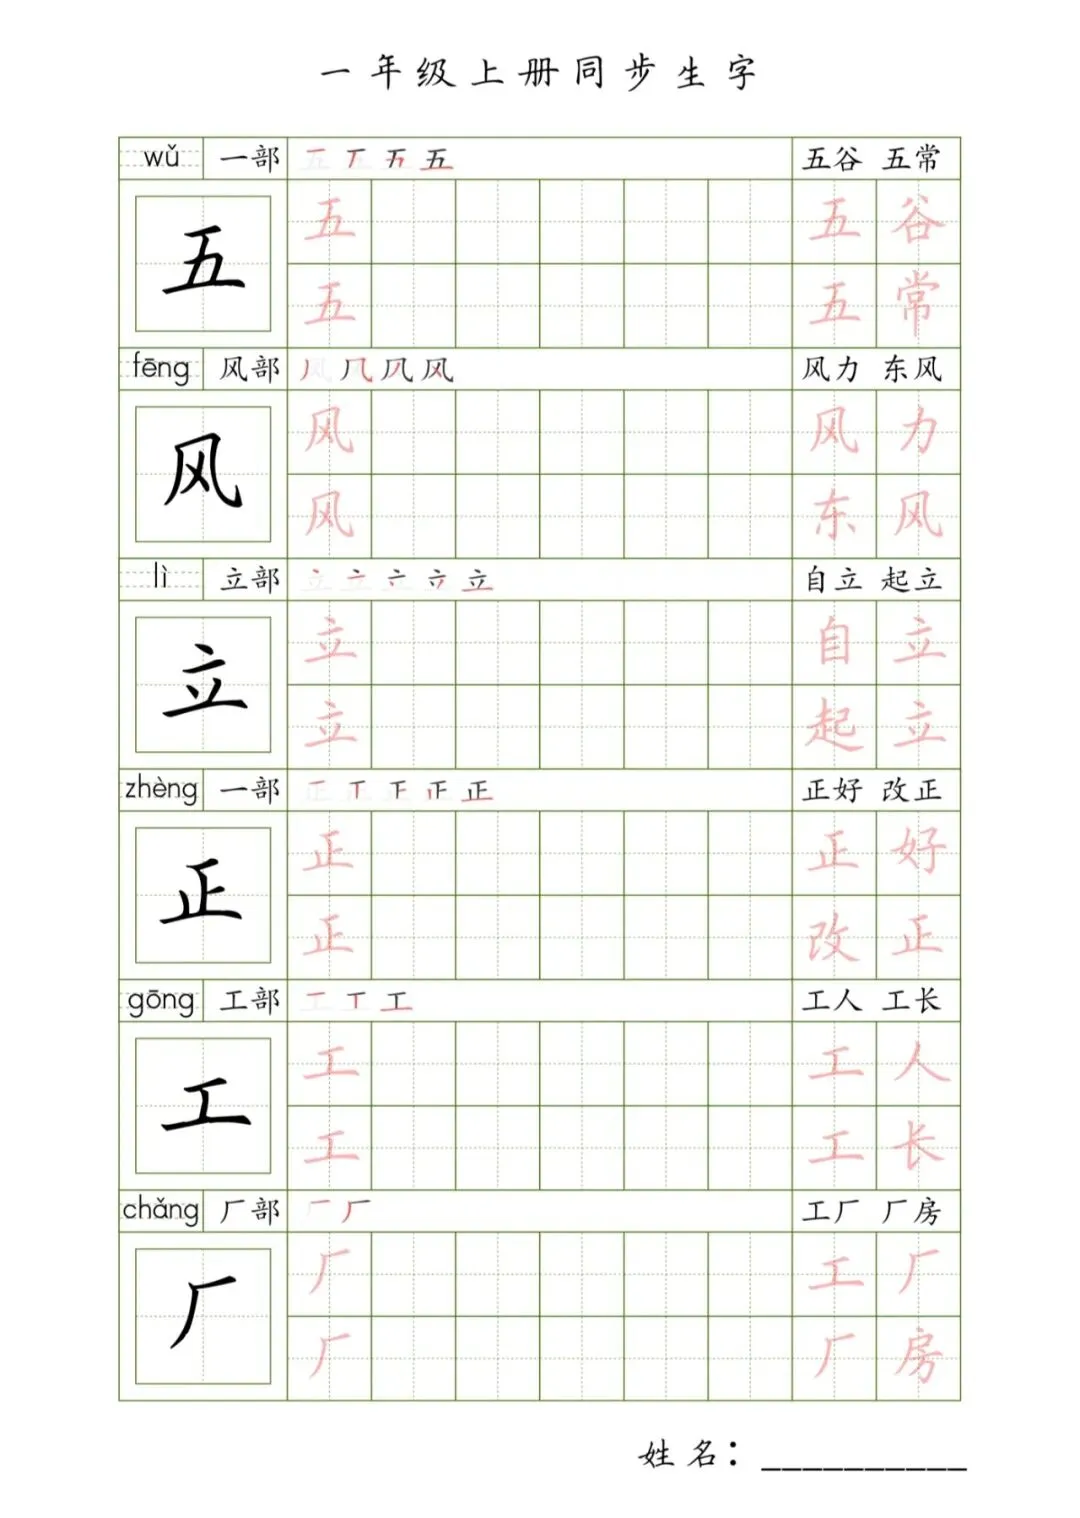 一年级上册同步生字
wǔ 一部 五五五五 五谷 五常
五 五 五 谷
五 五 常
fēng 风部 风风风风 风力 东风
风 风 风 力
风 东 风
lì 立部 立立立立立 自立 起立
立 立 自 立
立 起 立
zhèng 一部 正正正正正 正好 改正
正 正 正 好
正 改 正
gōng 工部 工工工 工人 工长
工 工 工 人
工 工 长
chǎng 厂部 厂厂 工厂 厂房
厂 厂 工 厂
厂 厂 房
姓名：__________